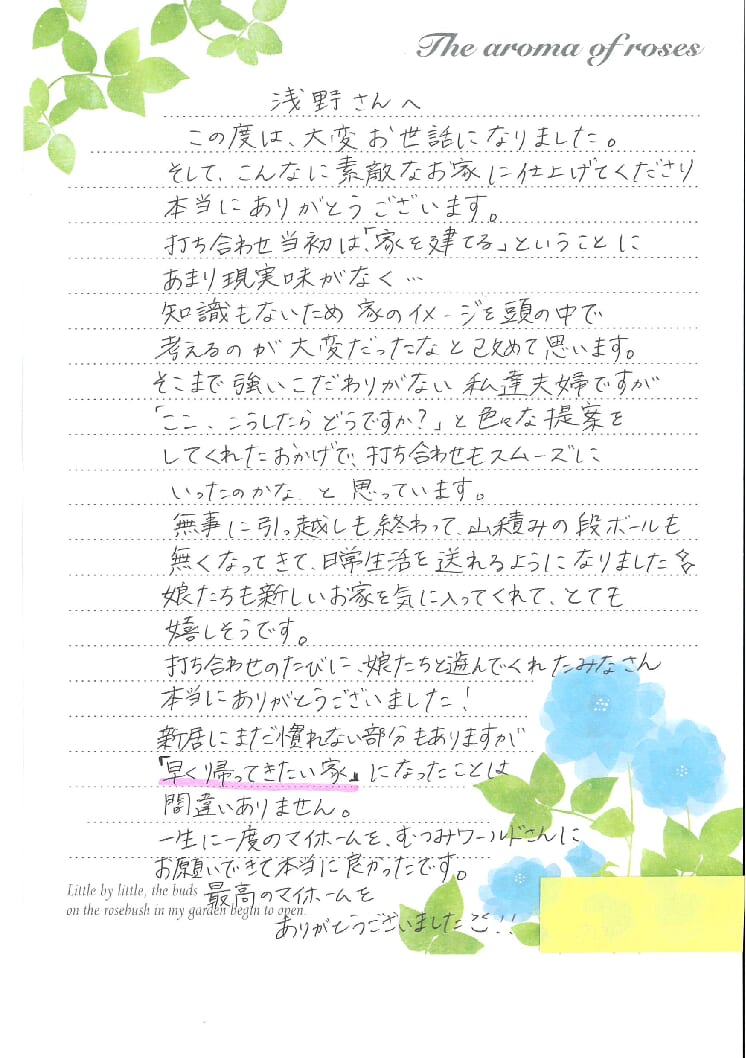 The aroma of roses
浅野さんへ
この度は、大変お世話になりました。
そして、こんなに素敵なお家に仕上げてくださり
本当にありがとうございます。
打ち合わせ当初は、「家を建てる」ということに
あまり現実味がなく…
知識もないため 家のイメージを頭の中で
考えるのが大変だったなと改めて思います。
そこまで強いこだわりがない私達夫婦ですが
「ここ、こうしたらどうですか?」と色々な提案を
してくれたおかげで、打ち合わせもスムーズに
いったのかな と思っています。
無事に引っ越しも終わって、山積みの段ボールも
無くなってきて、日常生活を送れるようになりました
娘たちも新しいお家を気に入ってくれて、とても
嬉しそうです。
打ち合わせのたびに、娘たちと遊んでくれたみなさん
本当にありがとうございました!
新居にまだ慣れない部分もありますが
『早く帰ってきたい家』になったことは
間違いありません。
一生に一度のマイホームを、むつみワールドさんに
お願いできて本当に良かったです。
最高のマイホームを
ありがとうございました!!
Little by little, the buds
on the rosebush in my garden begin to open.